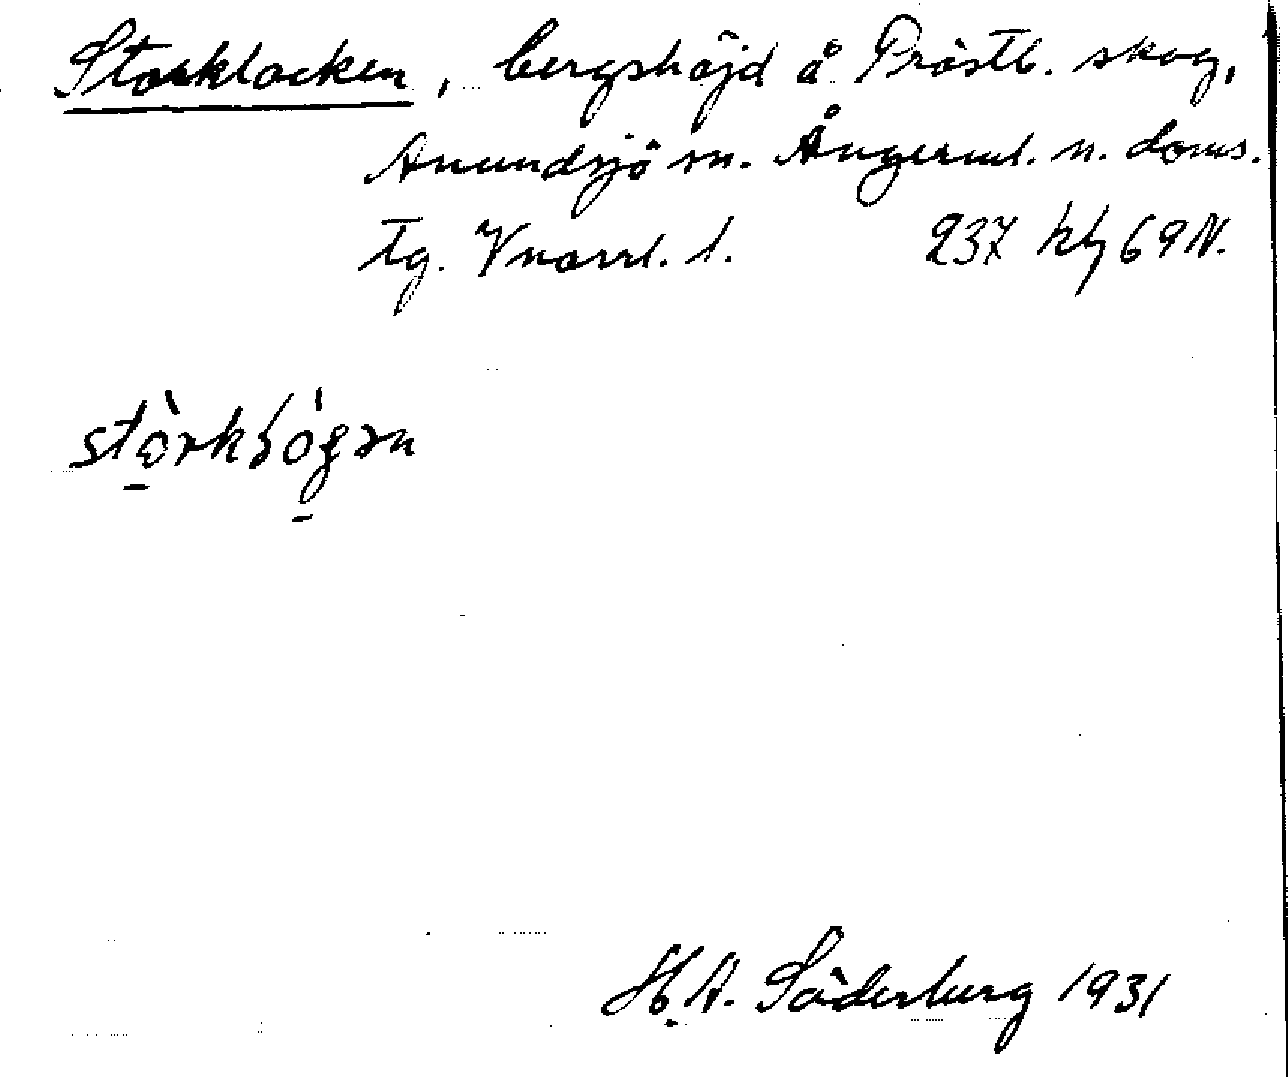 Storklocken, bergshöjd å Prästb. skog,
Anundsjö sn. Ångerml. n. doms.
tg. Vnorrl. l. 237 kbg 69 N.
H. A. Söderberg 1931